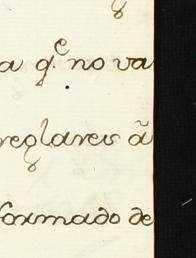 a q.e no va
reglares ã
formado de